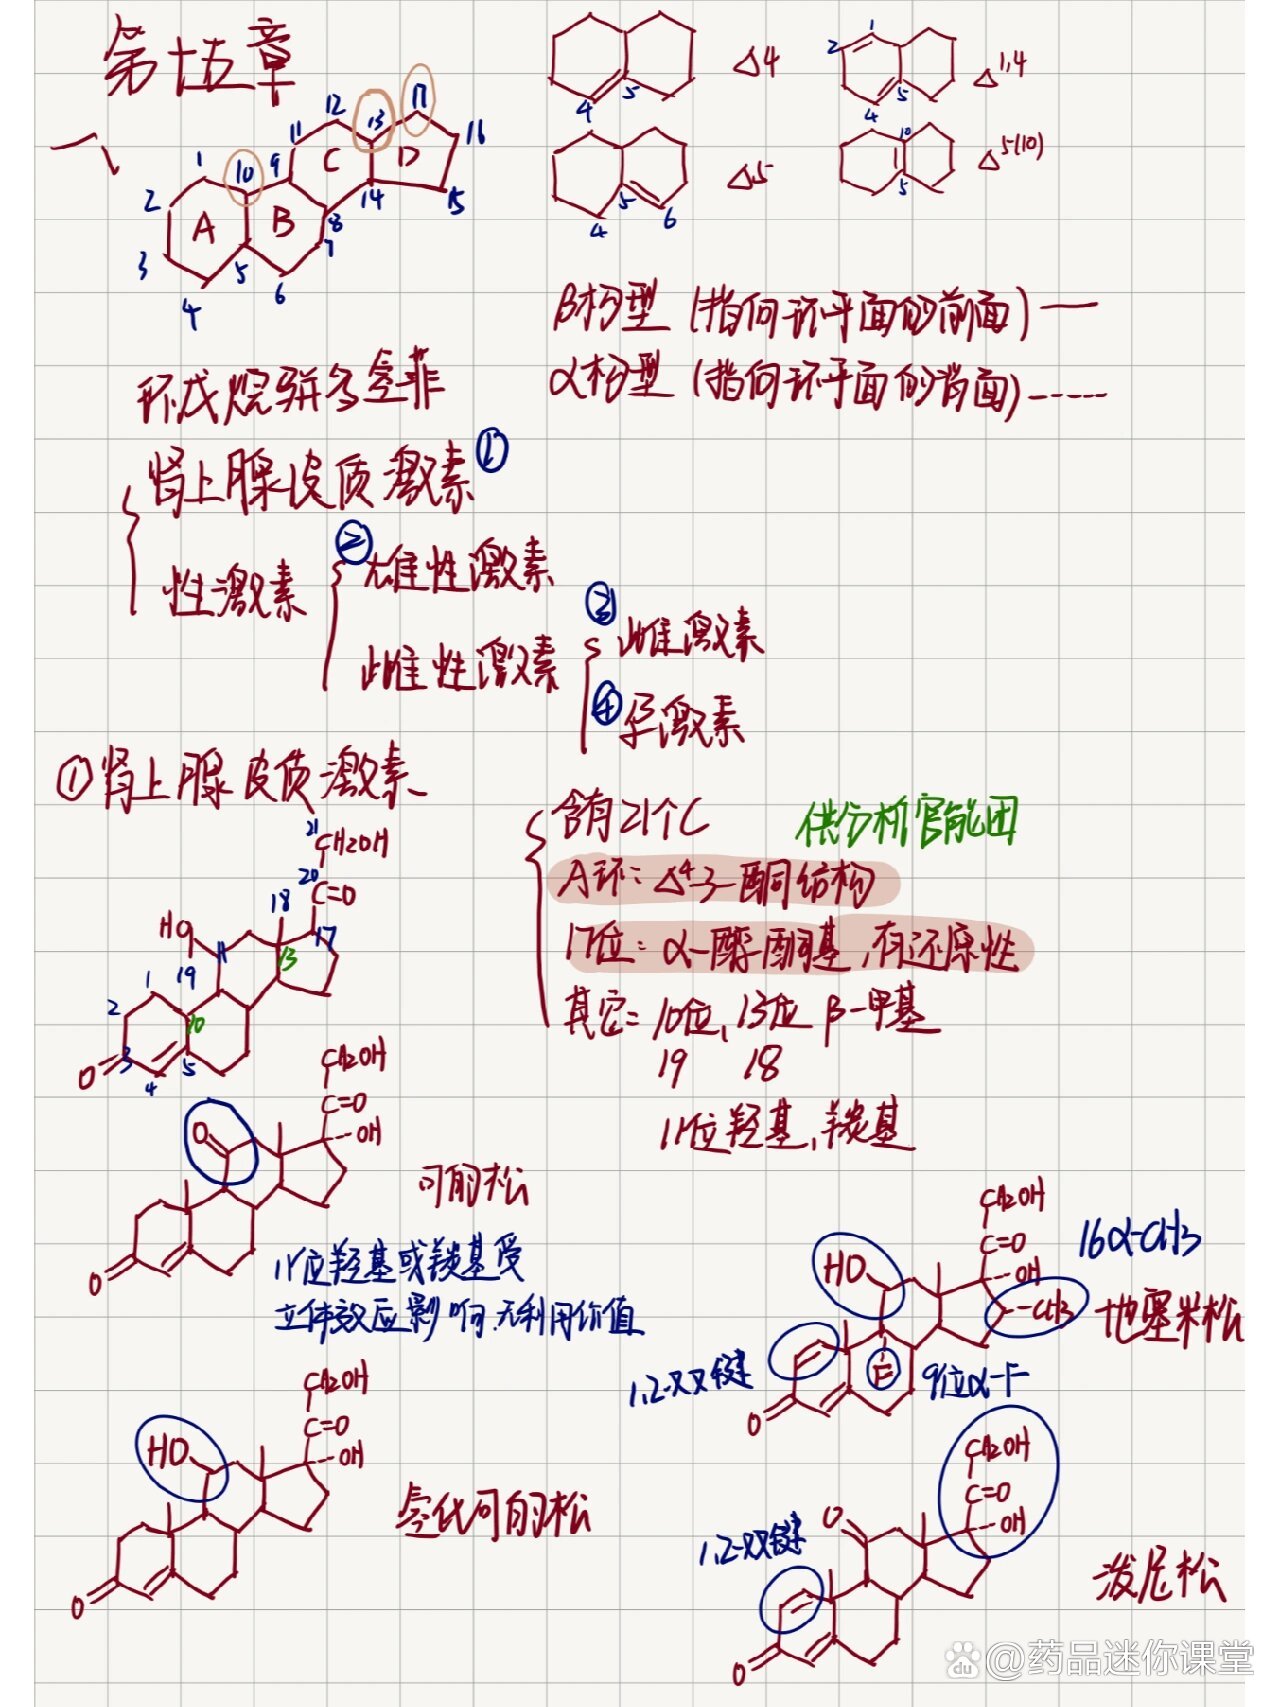 第十五章
一、
1 2 3 4 5 6 7 8 9 10 11 12 13 14 15 16 17
A B C D
4 5 Δ4
1 2 4 5 Δ1,4
4 5 6 Δ5
10 5 Δ5(10)
β构型(指向环平面的前面)——
α构型(指向环平面的背面)------
环戊烷骈多氢菲
肾上腺皮质激素①
性激素
②雄性激素
雌性激素
③雌激素
④孕激素
①肾上腺皮质激素
含有21个C
供分析官能团
A环:Δ4-3-酮结构
17位:α-醇酮基,有还原性
其它:10位、13位 β-甲基
19 18
11位羟基、羰基
21 CH2OH
20 C=O
18 17
HO 19 11 13
1 2 10
O 3 4 5
CH2OH
C=O
O --OH
可的松
O
11位羟基或羰基受
立体效应影响,无利用价值
CH2OH
C=O
HO --OH
氢化可的松
O
CH2OH
C=O
16α-CH3
HO --OH
--CH3
地塞米松
F
1,2-双键
9位α-F
O
CH2OH
C=O
O --OH
1,2-双键
泼尼松
O
Bai du @药品迷你课堂